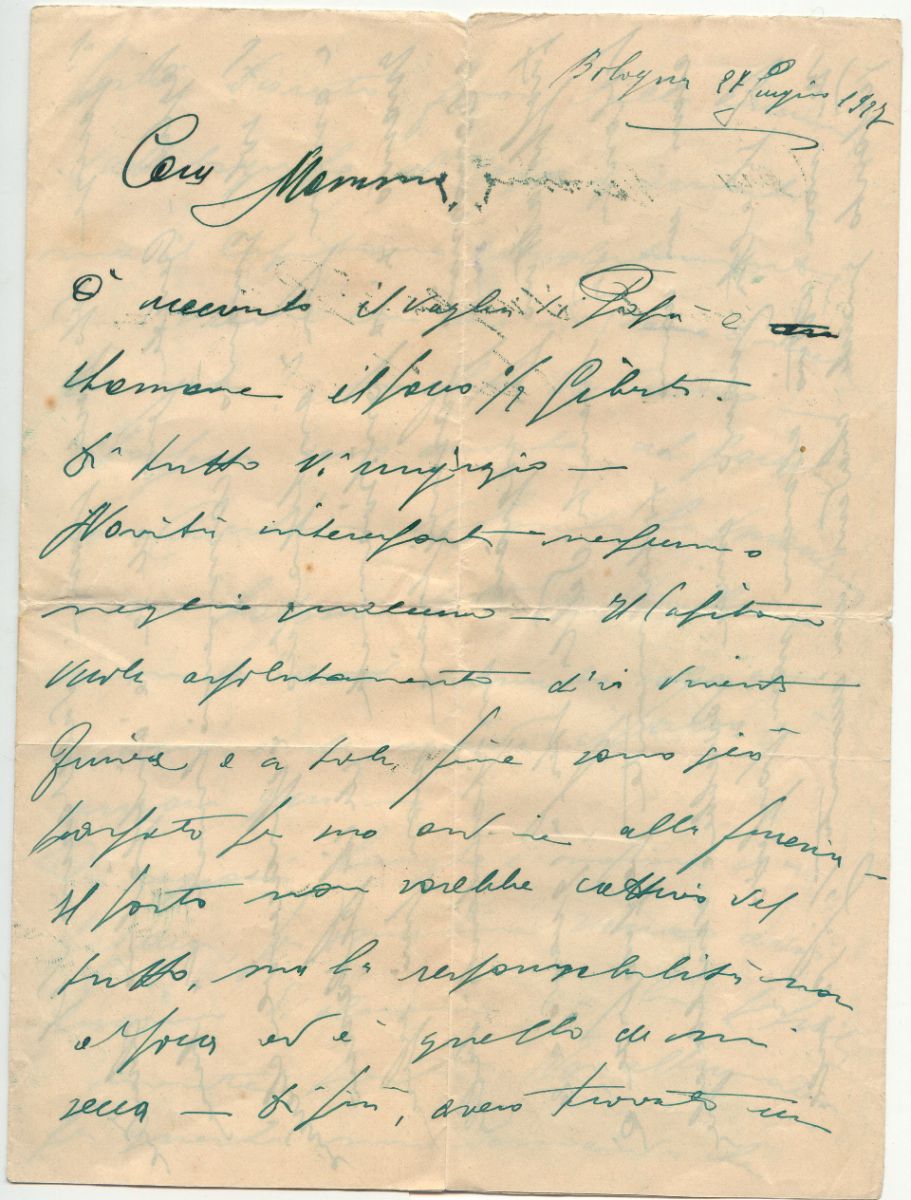 Bologna 27 Giugno 1927
Cara Mamma,
Ò ricevuto il vaglia di Papà e
stamane il pacco di Gilberto.
Di tutto vi ringrazio —
Novità interessanti nessuna o
meglio qualcuna — Il Capitano
vuole assolutamente
e a tale fine sono già
passato per suo ordine alla fureria
Il posto non sarebbe cattivo del
tutto, ma la responsabilità non
è poca ed è quello che mi
secca — Di più, avevo trovato un